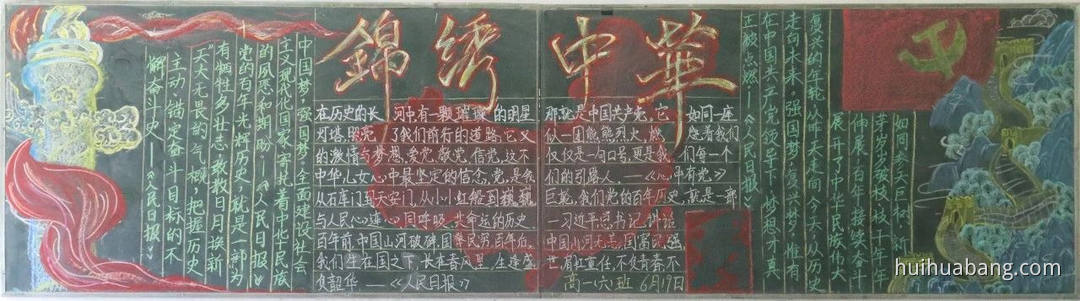 錦绣中華
中国梦，强国梦，全面建设社会
主义现代化国家，寄托着中华民族
的夙愿和期盼。——《人民日报》
党的百年光辉历史，就是一部为
有牺牲多壮志，敢教日月换新
天大无畏的气概，把握历史
主动、锚定奋斗目标的不
懈奋斗史——《人民日报》
在历史的长河中有一颗璀璨的明星
灯塔，照亮了我们前行的道路，它又
的激情与梦想，爱党，敬党，信党，这不
中华儿女心中最坚定的信念，党，是我
从石库门到天安门，从小小红船到巍巍
与人民心连心、同呼吸、共命运的历史
百年前，中国山河破碎，国弊民穷，百年后，
我们生在国之下，长在春风里，生逢盛
世，不负韶华——《人民日报》
那就是中国共产党，它如同一座
似一团熊熊烈火，燃
仅仅是一句口号，更是我们每一个
们的引路人。——《心中有党》
巨轮，我们党的百年历史，就是一部
——习近平总书记讲话
中国山河无恙，国富民强
世，肩扛重任，不负青春，不
高一（六）班 6月17日
复兴的年轮，从昨天走向今天，从历史
走向未来，强国梦，复兴梦，惟有
在中国共产党领导下，梦想才真
正被点燃——《人民日报》
如同参天巨树，新
芽岁岁破枝，枝干年年
伸展，百年接续奋斗
展开了中华民族伟大
huihuabang.com